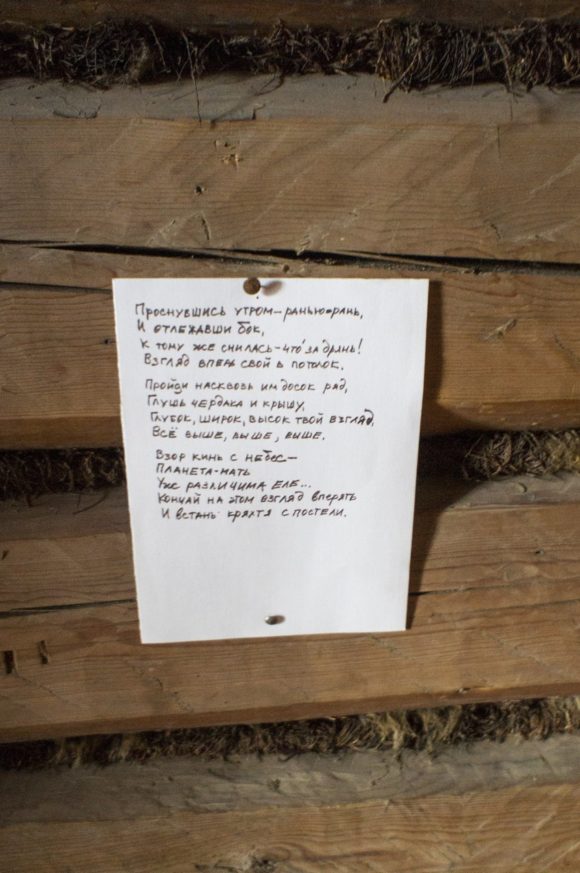 Проснувшись утром-ранью-рань,
И отлежавши бок,
К тому же снилась - что за дрянь!
Взгляд впери свой в потолок.
Пройди насквозь им досок ряд,
Глушь чердака и крышу,
Глубок, широк, высок твой взгляд.
Всё выше, выше, выше.
Взор кинь с небес -
Планета-мать
Уж различима еле...
Кончай на этом взгляд вперять
И встань кряхтя с постели.